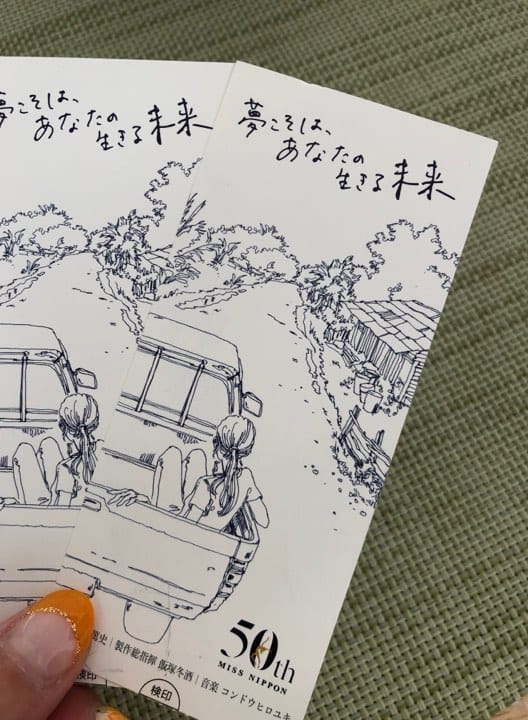 夢こそは、
あなたの
生きる未来
夢こそは、
あなたの
生きる未来
50th
MISS NIPPON
史｜製作総指揮 飯塚冬酒｜音楽 コンドウヒロユキ
検印
検印